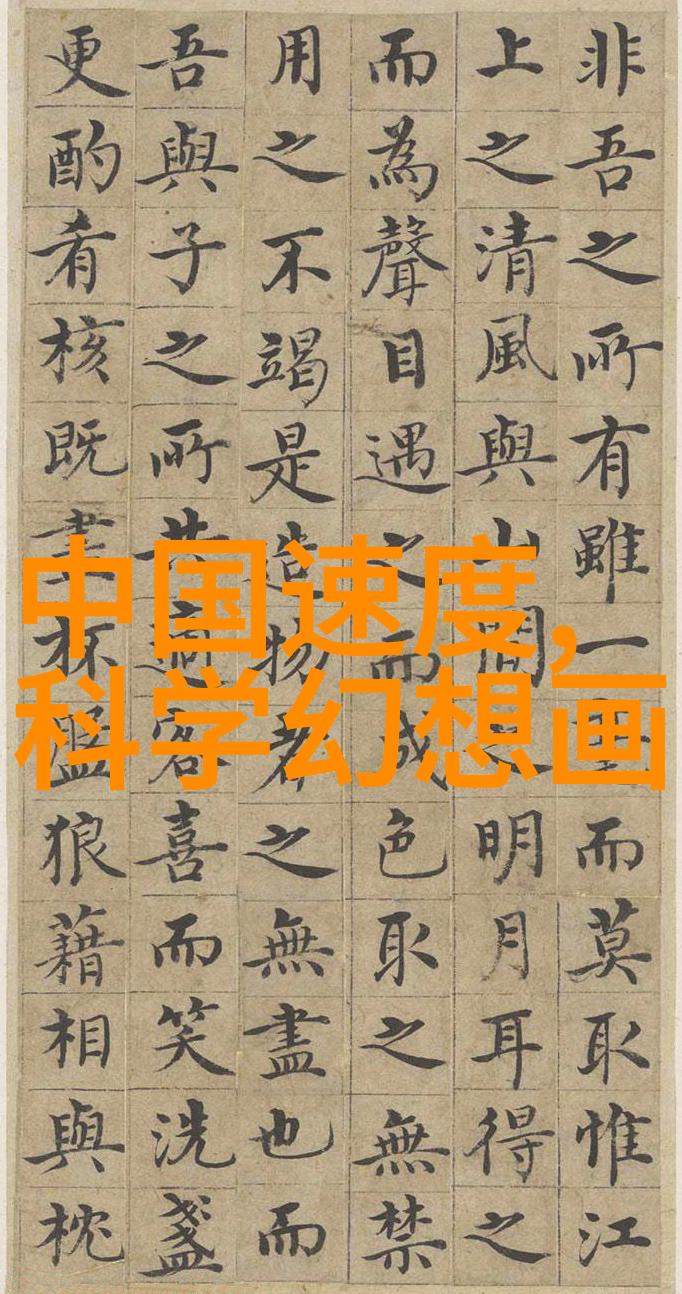 非吾之所有雖一毫而莫取惟江
上之清風與山間之明月耳得之
而為聲目遇之而成色取之無禁
用之不竭是造物者之無盡也而
吾與子之所共適客喜而笑洗盞
更酌肴核既盡杯盤狼藉相與枕
中国速度,
科学幻想画